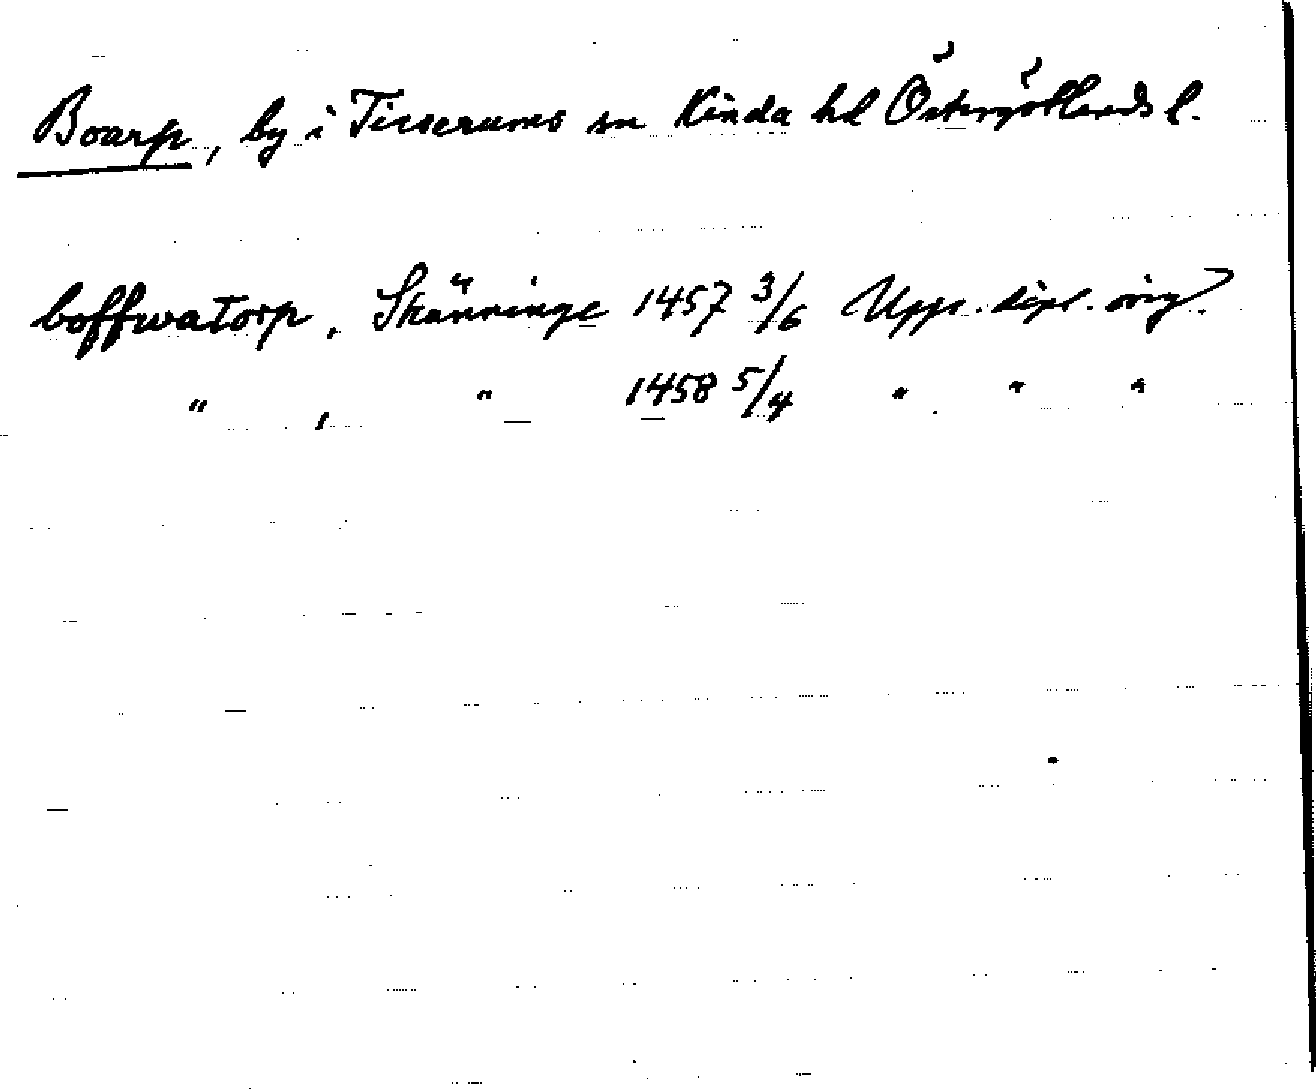 Boarp, by i Tirserums sn Kinda hd Östergötlands l.
boffwatorp, Skänninge 1457 3/6 Upps. dipl. orig.
" , " 1458 5/4 " " "